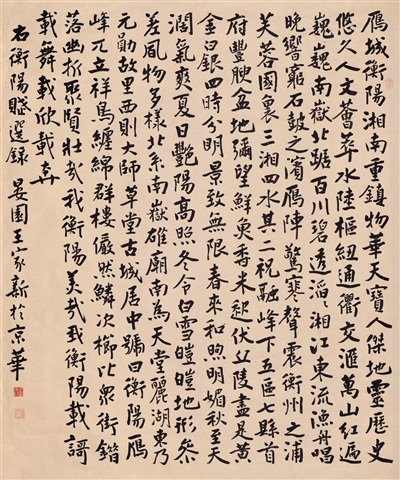 雁城衡陽湘南重鎮物華天寶人傑地靈歷史
悠久人文薈萃水陸樞紐通衢交滙萬山紅遍
巍巍南嶽北踞百川碧透滔滔湘江東流漁舟唱
晚響窮石鼓之濱雁陣驚寒聲震衡州之浦
芙蓉國裏三湘四水其二祝融峰下五區七縣首
府豐腴盆地彌望鮮米起伏丘陵盡是黃
金白銀四時分明景致無限春來和煦明媚秋至天
濶氣爽夏日艷陽高照冬令白雪皚皚地形參
差風物多樣北系南嶽雄廟南為天堂麗湖東乃
元勛故里西則大師草堂古城居中號曰衡陽雁
峰兀立祥鳥纏綿群樓儼然鱗次櫛比衆街錯
落幽折聚賢壯哉我衡陽美哉我衡陽載謌
載舞載欣載奔
右衡陽賦選錄 晏園王家新於京華